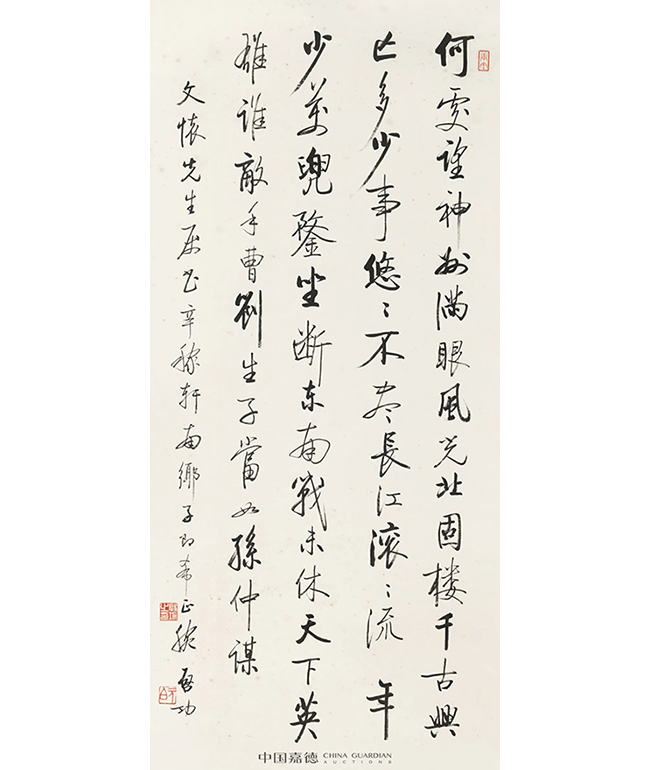 何處望神州滿眼風光北固楼千古興
亡多少事悠〻不盡長江滚〻流 年
少萬兜鍪坐断东南戰未休天下英
雄誰敵手曹劉生子當如孫仲謀
文懷先生属书辛稼轩南鄉子即希正腕 启功
中国嘉德 CHINA GUARDIAN
AUCTIONS